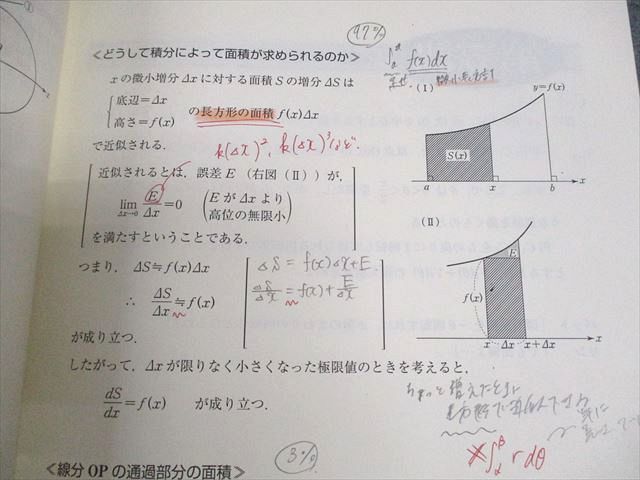 99%
＜どうして積分によって面積が求められるのか＞
f(x)dx
x の微小増分 Δx に対する面積 S の増分 ΔS は
底辺＝Δx
高さ＝f(x)
の長方形の面積 f(x)Δx
で近似される．
k(Δx)², k(Δx)³など
近似されるとは，誤差 E（右図（Ⅱ））が，
lim Δx→0 E/Δx ＝0 （E が Δx より高位の無限小）
を満たすということである．
つまり，ΔS≒f(x)Δx
∴ ΔS/Δx ≒f(x)
ΔS = f(x)Δx+E
ΔS/Δx = f(x)+ E/Δx
が成り立つ．
したがって，Δx が限りなく小さくなった極限値のときを考えると，
dS/dx ＝f(x) が成り立つ．
(Ⅰ)
y＝f(x)
S(x)
a x b x
(Ⅱ)
E
f(x)
x Δx x＋Δx x
ちょっと増えたときに
∫ r dθ
3%
≪線分 OP の通過部分の面積≫